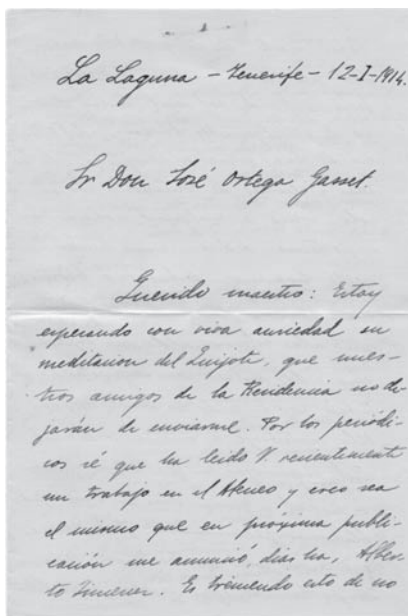 La Laguna – Tenerife – 12-I-1914.
Sr Don José Ortega Gasset.
Querido maestro: Estoy
esperando con viva ansiedad su
meditacion del Quijote, que nues-
tros amigos de la Residencia no de-
jarán de enviarme. Por los periódi-
cos sé que ha leido V. recientemente
un trabajo en el Ateneo y creo sea
el mismo que en próxima publi-
cación me anunció, dias ha, Alber-
to Jimenez. Es tremendo esto de no